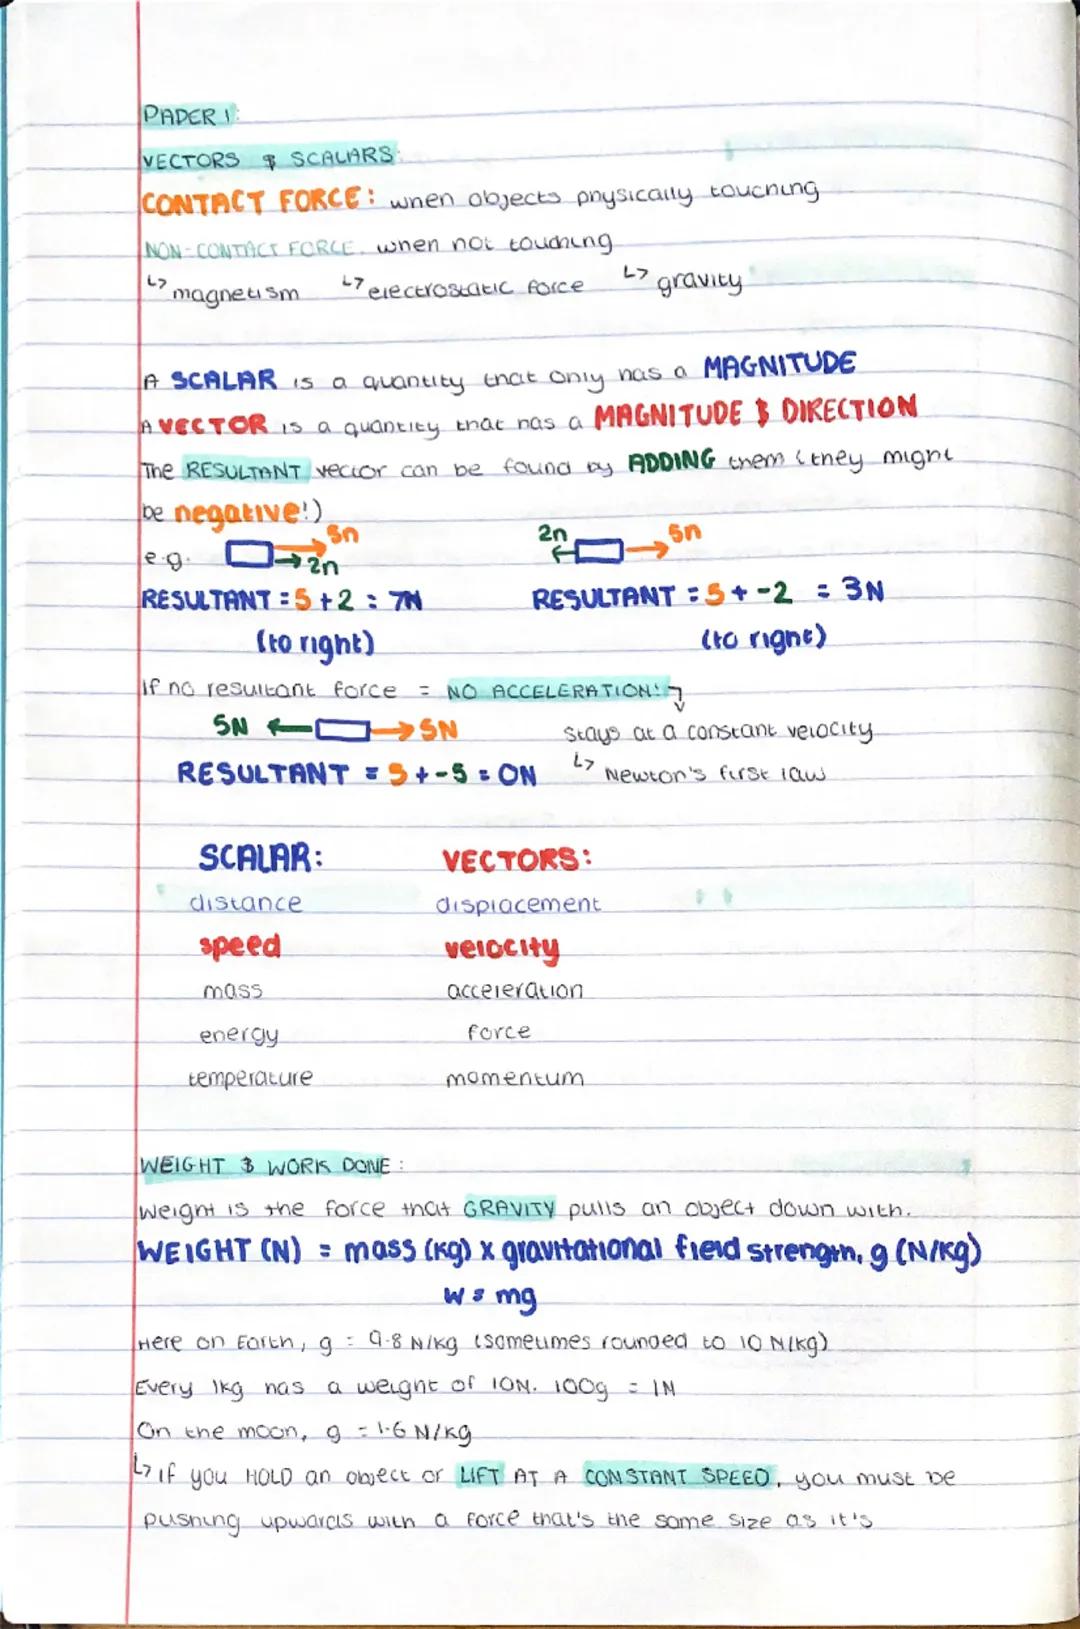 PAPER 1:
VECTORS & SCALARS:
CONTACT FORCE: when objects physically touching
NON-CONTACT FORCE. when not touching
↳ magnetism ↳ electrostatic force ↳ gravity
A SCALAR is a quantity that only has a MAGNITUDE
A VECTOR is a quantity that has a MAGNITUDE & DIRECTION
The RESULTANT vector can be found by ADDING them (they might
be negative!)
5n 2n 5n
e.g. 2n
RESULTANT = 5 + 2 = 7N RESULTANT = 5 + -2 = 3N
(to right) (to right)
If no resultant force = NO ACCELERATION!
5N 5N stays at a constant velocity
RESULTANT = 5 + -5 = 0N ↳ Newton's first law
SCALAR: VECTORS:
distance displacement
speed velocity
mass acceleration
energy force
temperature momentum
WEIGHT & WORK DONE:
Weight is the force that GRAVITY pulls an object down with.
WEIGHT (N) = mass (kg) x gravitational field strength, g (N/kg)
W = mg
Here on Earth, g = 9.8 N/kg (sometimes rounded to 10 N/kg)
Every 1kg has a weight of 10N. 100g = 1N
On the moon, g = 1.6 N/kg
↳ if you HOLD an object or LIFT AT A CONSTANT SPEED, you must be
pushing upwards with a force that's the same size as it's